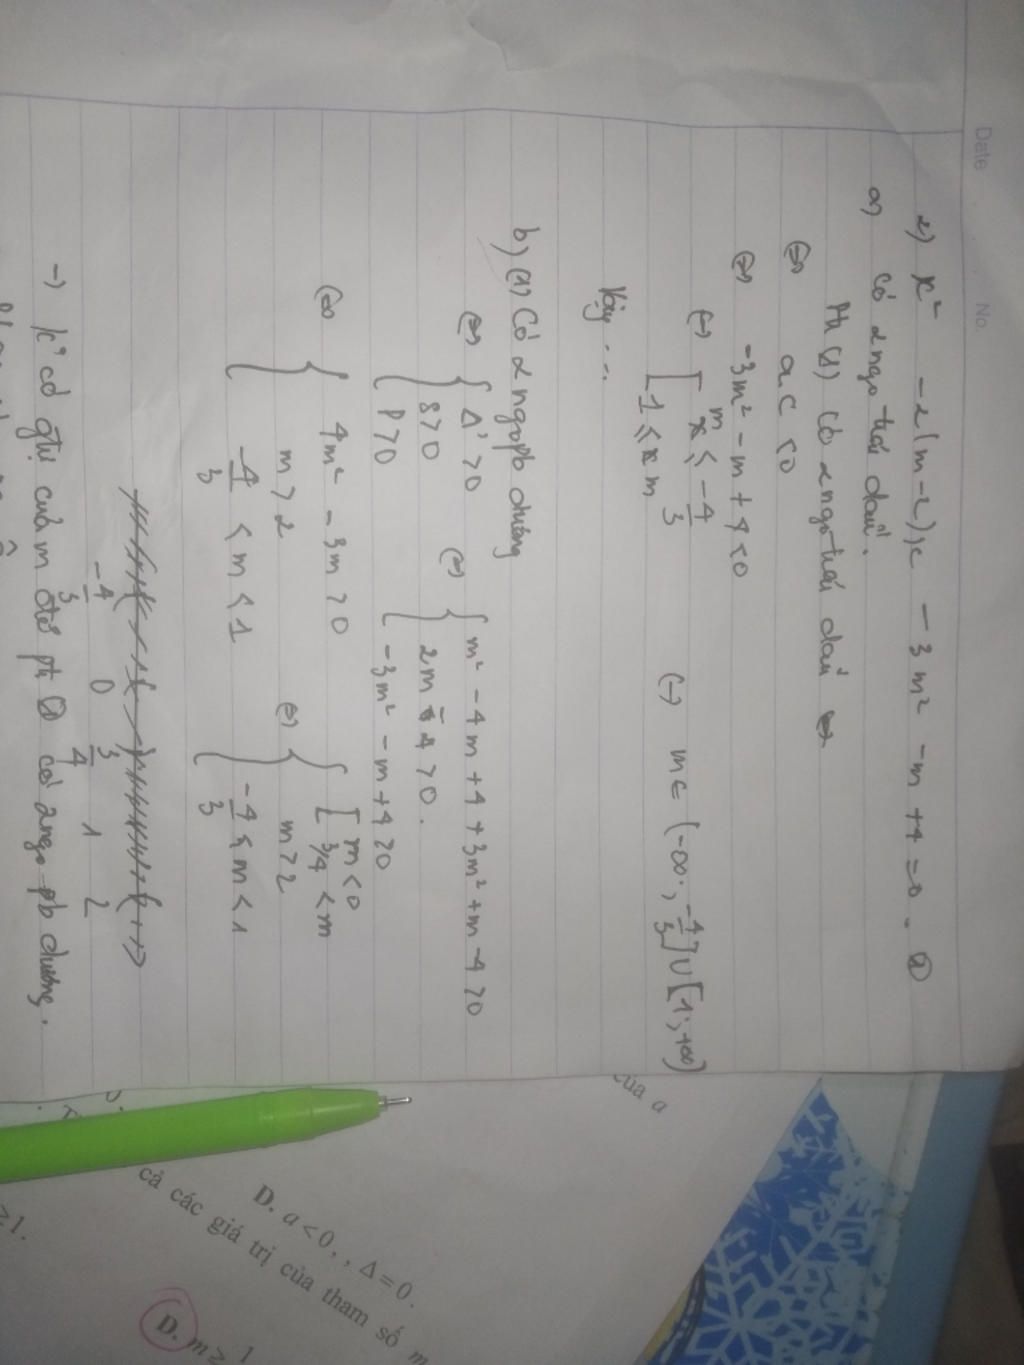 Date
No.
2) x² - 2(m-2)x - 3m² - m + 4 = 0. (1)
a) có 2 ngo trái dấu.
Pt (1) có 2 ngo trái dấu
(=) ac < 0
(=) -3m² - m + 4 < 0
(=) [ m ≤ -4/3
[ 1 ≤ m
(=) m ∈ (-∞; -4/3] ∪ [1; +∞)
Vậy ...
b) (1) Có 2 ngo pb dương
(=) { Δ' > 0
S > 0
P > 0
(=) { m² - 4m + 4 + 3m² + m - 4 > 0
2m - 4 > 0.
-3m² - m + 4 > 0
(=) { 4m² - 3m > 0
m > 2
-4/3 < m < 1
(=) { [ m < 0
[ 3/4 < m
m > 2
-4/3 < m < 1
-4/3 0 3/4 1 2
-) k° có gtrị của m để pt (1) có 2 ngo pb dương.
của a
D. a < 0, , Δ = 0.
cả các giá trị của tham số m
≥ 1.
D. m ≥ 1